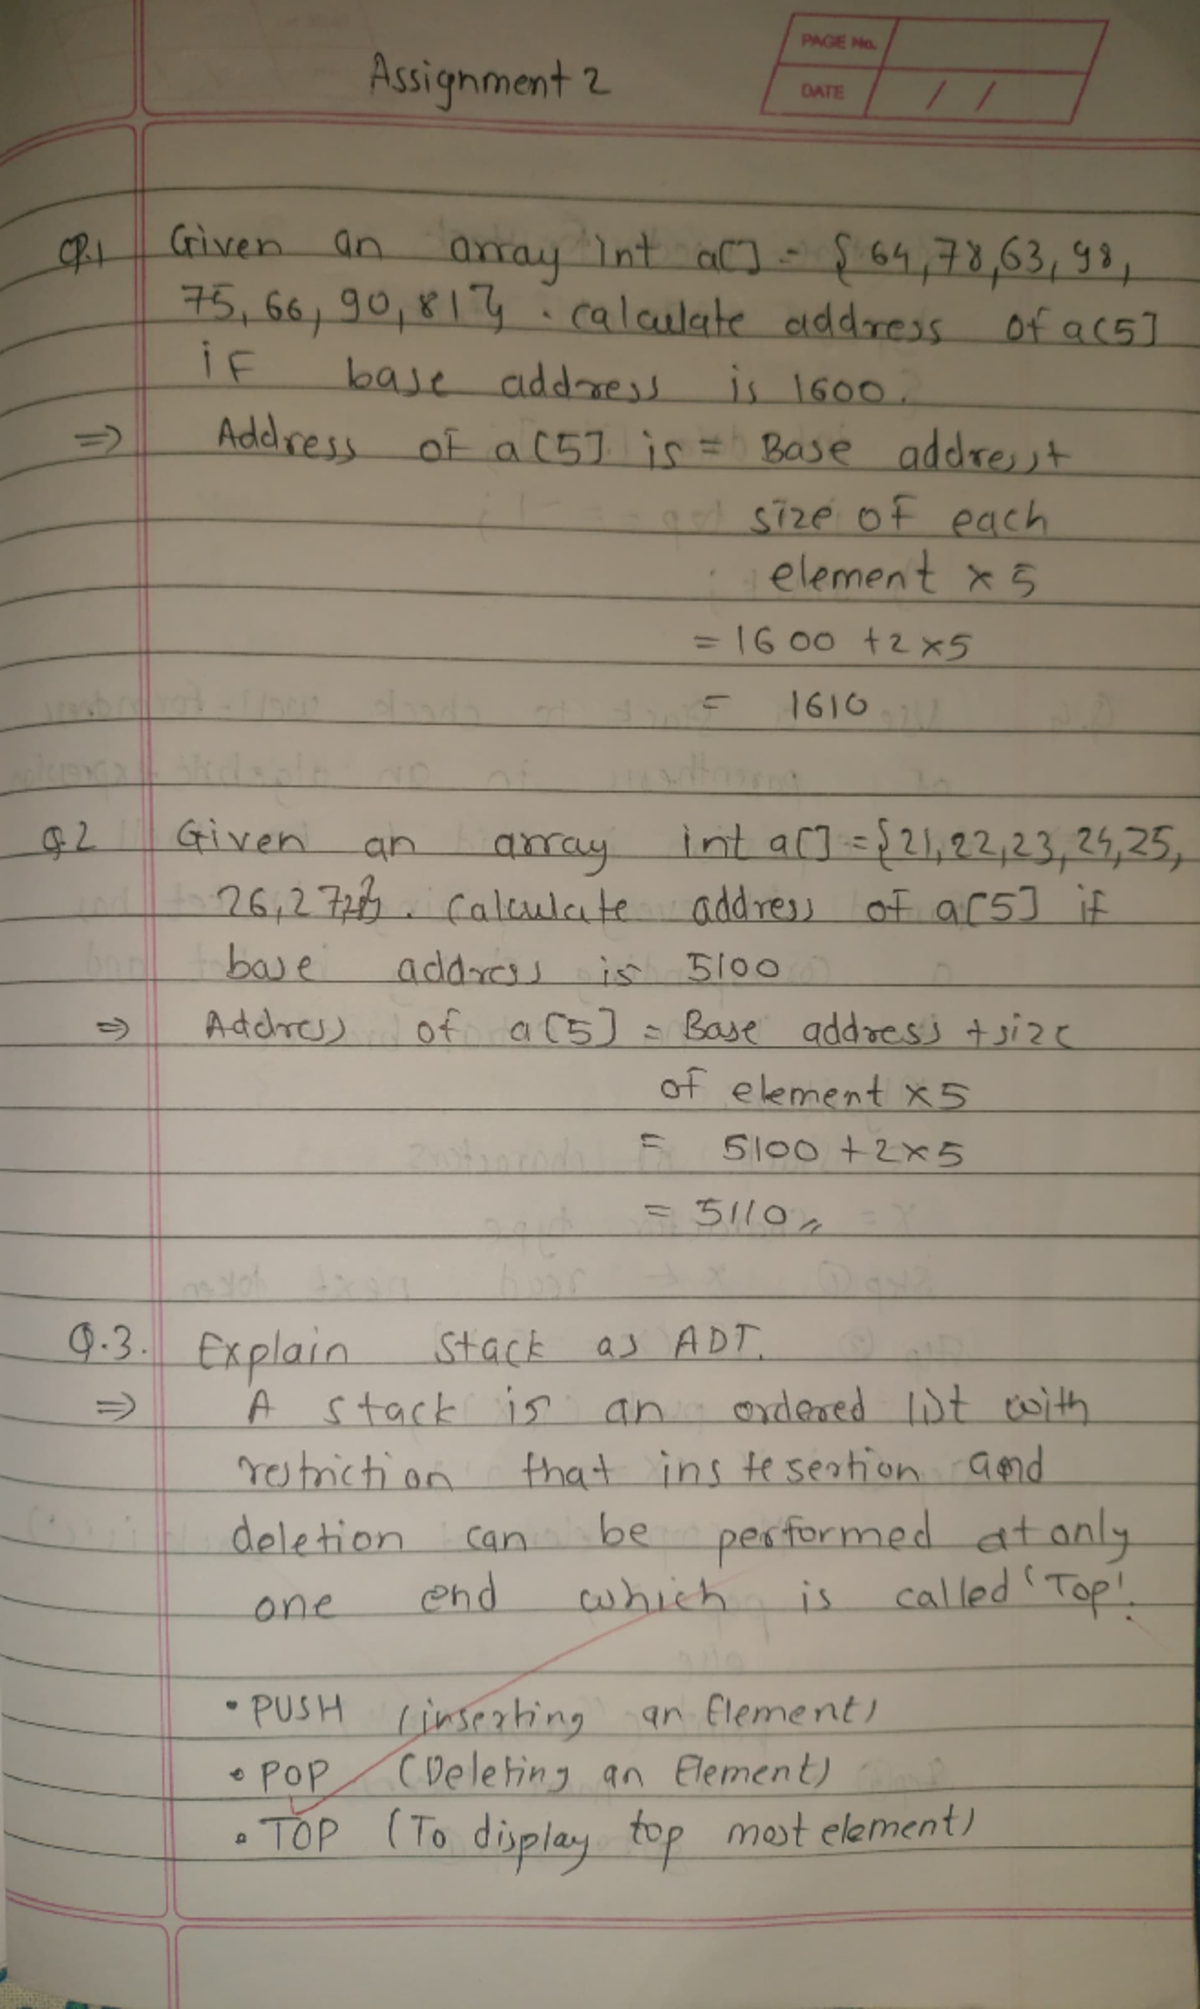 Assignment 2
PAGE No.
DATE / /
Q.1 Given an array int a[] = {64,78,63,98,
75,66,90,81}. calculate address of a[5]
if base address is 1600.
⇒ Address of a[5] is = Base address+
size of each
element × 5
= 1600 + 2 × 5
= 1610
Q.2 Given an array int a[] = {21,22,23,24,25,
26,27}. Calculate address of a[5] if
base address is 5100
⇒ Address of a[5] = Base address + size
of element × 5
= 5100 + 2 × 5
= 5110
Q.3. Explain stack as ADT.
⇒ A stack is an ordered list with
restriction that and
deletion can be performed at only
one end which is called 'Top'.
• PUSH (inserting an Element)
• POP (Deleting an Element)
• TOP (To display top most element)